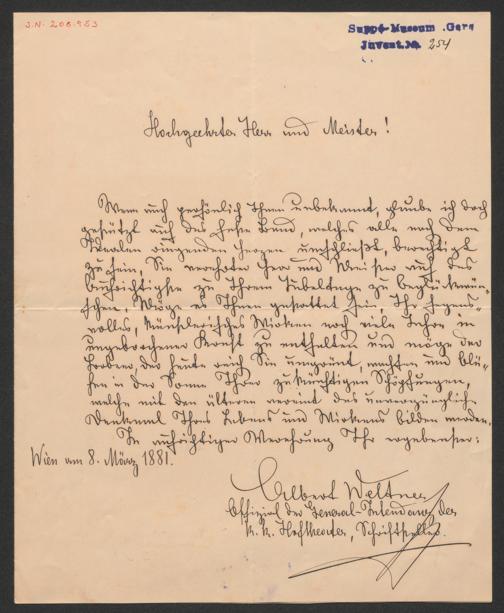 J.N. 208.953
Suppé-Museum Gars
Invent.No 254
Hochgeehrter Herr und Meister!
Wenn auch persönlich Ihnen unbekannt, glaube ich doch
gestützt auf das hehre Band, welches alle nach dem
Idealen ringenden Herzen umschließt, berechtigt
zu sein, Sie verehrter Herr und Meister auf das
Aufrichtigste zu Ihrem Jubeltage zu beglückwün-
schen. Möge es Ihnen gestattet sein, Ihr segens-
volles, künstlerisches Wirken noch viele Jahre in
ungebrochener Kraft zu entfalten und möge der
Lorbeer, der heute reich Sie umgrünt, wachsen und blü-
hen in der Sonne Ihrer zukünftigen Schöpfungen,
welche mit den älteren vereint das unvergängliche
Denkmal Ihres Lebens und Wirkens bilden werden.
In aufrichtiger Verehrung Ihr ergebenster:
Wien am 8. März 1881.
Albert Weltner
Offizial der General-Intendanz der
k. k. Hoftheater, Schriftsteller.